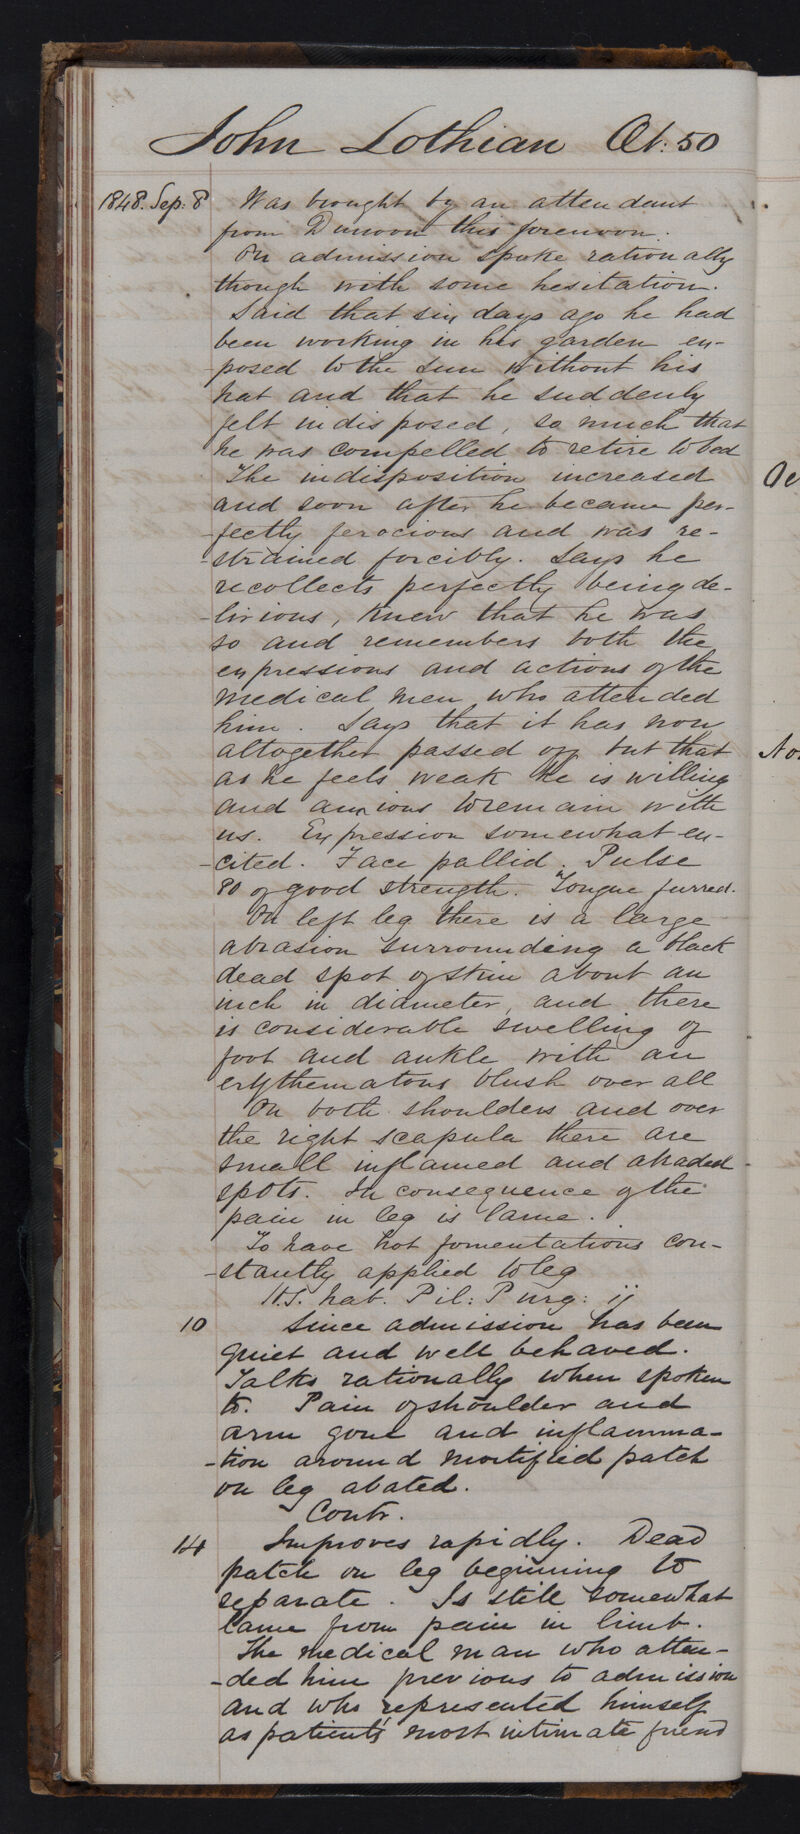 John Lothian Æt: 50
1848. Sep: 8 Was brought by an attendant
from Dunoon this forenoon.
On admission spoke rationally
though with some hesitation.
Said that six days ago he had
been working in his garden ex-
-posed to the sun without his
hat and that he suddenly
felt indisposed, so much that
he was compelled to retire to bed
The indisposition increased
and soon after he became per-
-fectly ferocious and was re-
-strained forcibly. Says he
recollects perfectly being de-
-lirious, knew that he was
so and remembers both the
expressions and actions of the
medical men who attended
him. Says that it has now
altogether passed off but that
as he feels weak he is willing
and anxious to remain with
us. Expression somewhat ex-
-cited. Face pallid. Pulse
80 of good strength. Tongue furred.
On left leg there is a large
abrasion surrounding a black
dead spot of skin about an
inch in diameter, and there
is considerable swelling of
foot and ankle with an
erythematous blush over all
On both shoulders and over
the right scapula there are
small inflamed and abraded
spots. In consequence of the
pain in leg is lame.
To have hot fomentations con-
-stantly applied to leg
H.S. hab. Pil: Purg: ij
10 Since admission has been
quiet and well behaved.
Talks rationally when spoken
to. Pain of shoulder and
arm gone and inflamma-
-tion around mortified patch
on leg abated.
Contr.
14 Improves rapidly. Dead
patch on leg beginning to
separate. Is still somewhat
lame from pain in limb.
The medical man who atten-
-ded him previous to admission
and who represented himself
as patient's most intimate friend